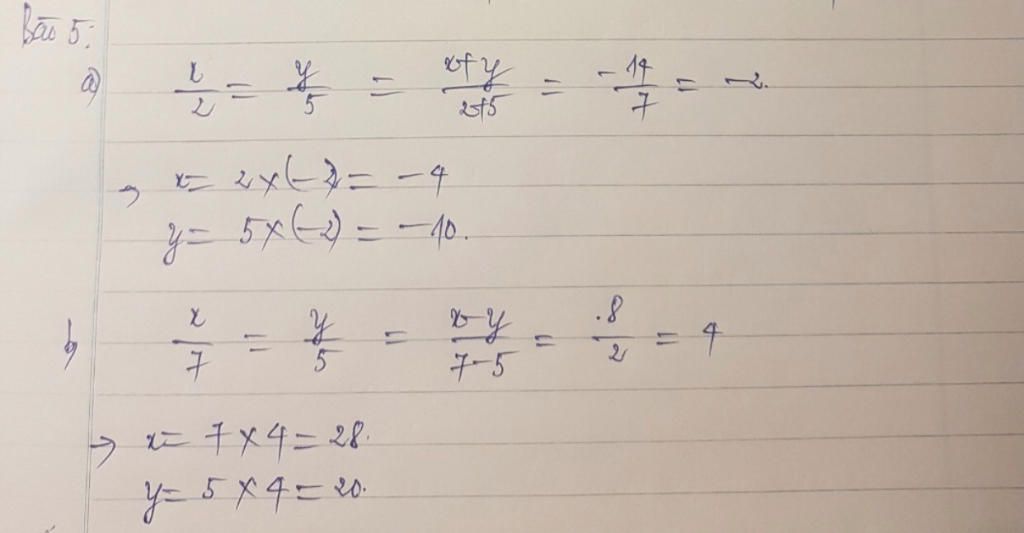 Bài 5:
a) x/2 = y/5 = x+y/2+5 = -14/7 = -2.
→ x = 2 × (-2) = -4
y = 5 × (-2) = -10.
b) x/7 = y/5 = x-y/7-5 = 8/2 = 4
→ x = 7 × 4 = 28.
y = 5 × 4 = 20.